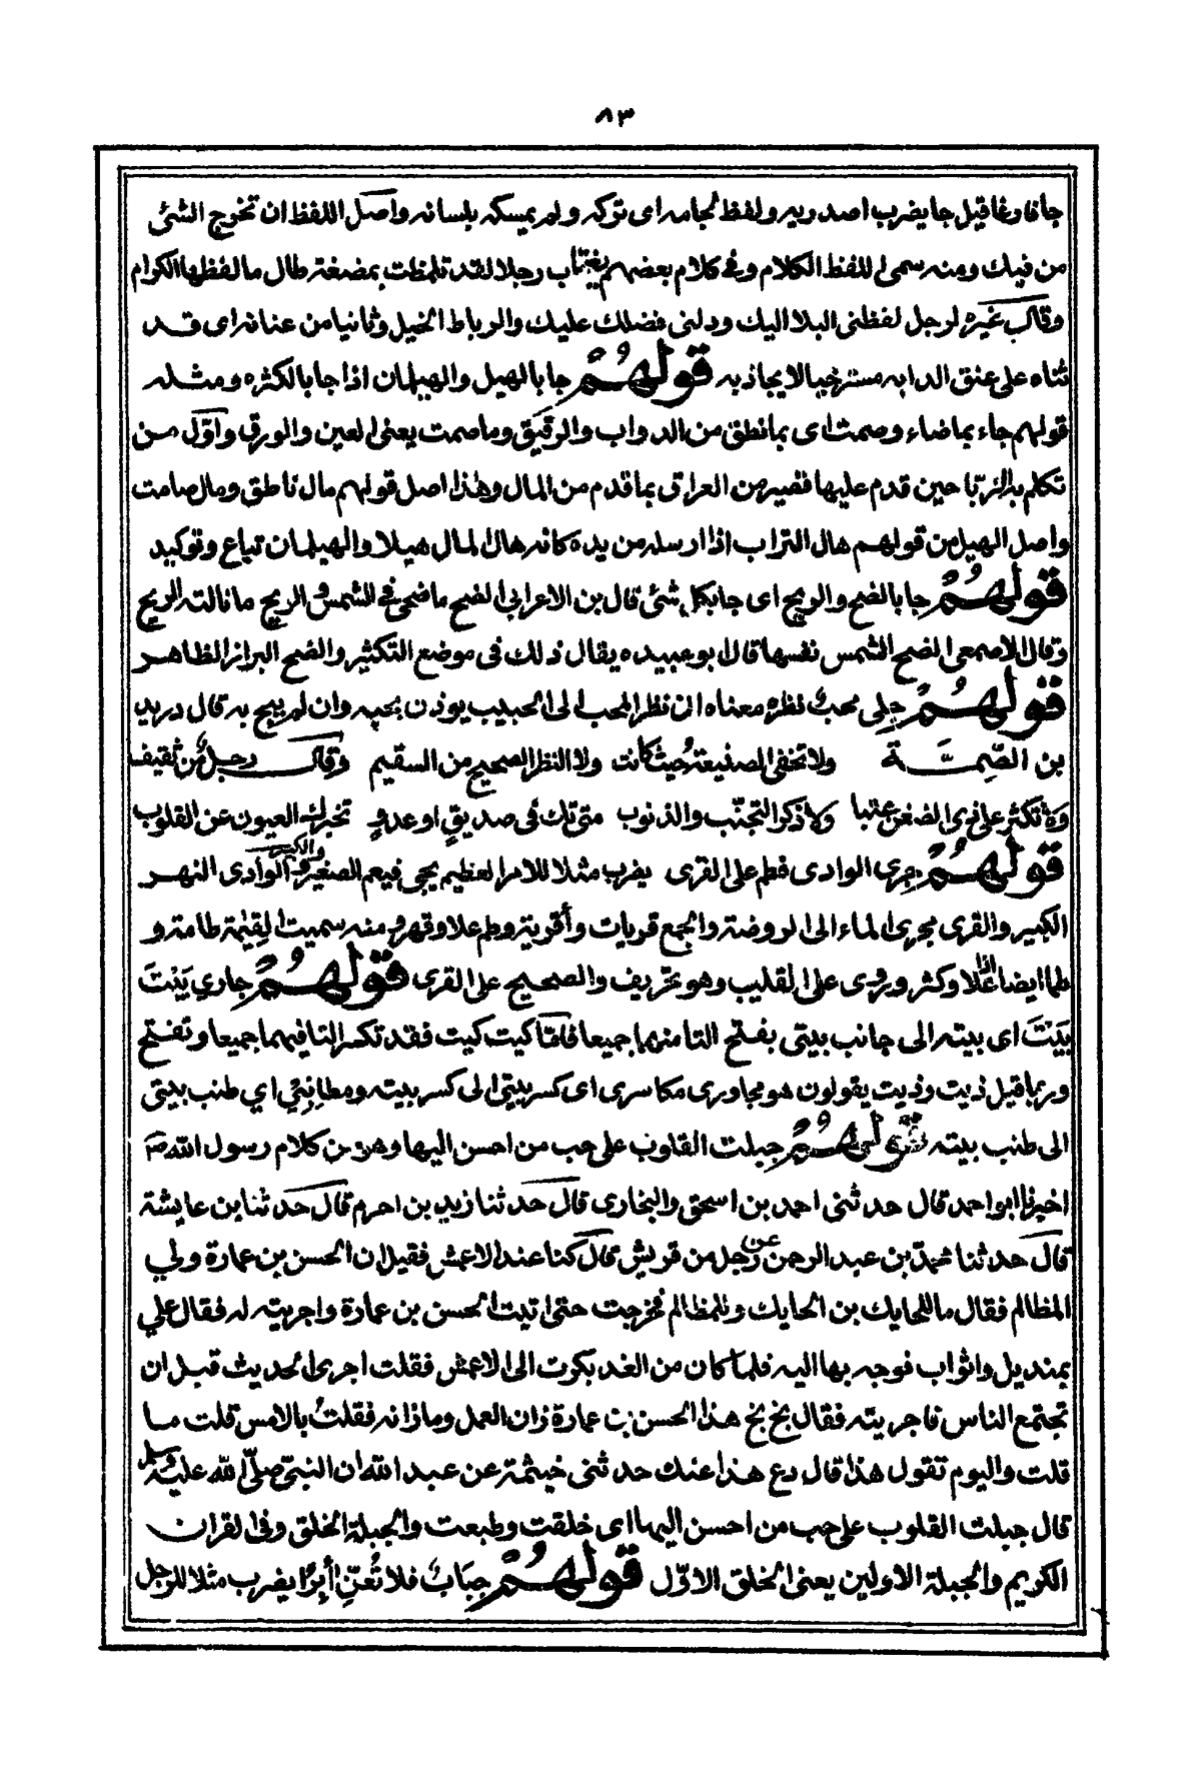 ٨٣
جافا وغا قيل جا يضرب اصدريه ولفظ لجامه اى تركه ولم يمسكه بلسانه واصل اللفظ ان تخرج الشئ
من فيك ومنه سمى اللفظ الكلام وفى كلام بعضهم يغتاب رجلا لقد تلمظت بمضغة طال ما لفظها الكرام
وقال غيره لرجل لفظنى البلا اليك ودلنى فضلك عليك والرباط الخيل وثانيا من عنانه اى قد
ثناه على عنق الدابه مسترخيا لا يجاذبه قولهم جا بالهيل والهيلمان اذا جا بالكثره ومثله
قولهم جاء بما ضاء وصمت اى بما نطق من الدواب والرقيق وما صمت يعنى العين والورق واوّل من
تكلم بذلك الزبّا حين قدم عليها قصير من العراق بما قدم من المال وهذا اصل قولهم مال ناطق ومال صامت
واصل الهيل من قولهم هال التراب اذا ارسله من يده كانه هال المال هيلا والهيلمان تباع وتوكيد
قولهم جا بالضح والريح اى جا بكل شئ قال بن الاعرابى الضح ما ضحى فى للشمس والريح ما نالته الريح
وقال الاصمعى الضح الشمس نفسها قال ابو عبيده يقال ذلك فى موضع التكثير والضح البراز الظاهر
قولهم جلى محبٌ نظره معناه ان نظر المحب الى الحبيب يوذن بحبه وان لم يبح به قال دريد
بن الصّمة ولا تخفى الصنيعة حيث كانت ولا النظر الصحيح من السقيم وقال رجل من ثقيف
ولا تكثر على ذى الضغن عتبا ولا ذكر التجنّب والذنوب متى تك فى صديقٍ او عدوٍ تخبرك العيون عن القلوب
قولهم جرى الوادى فطم على القرى يضرب مثلا للامر العظيم يجى فيعم الصغير والكبير والوادى النهر
الكبير والقرى مجرى الماء الى الروضة والجمع قريات وأقرية وطم علا وقهر ومنه سميت القيٰمة طامة و
طما ايضا اذا علا وكثر وروى على القليب وهو تحريف والصحيح على القرى قولهم جارى بَيْتَ
بَيْتَ اى بيته الى جانب بيتى بفتح التا منهما جميعا فامّا كيت كيت فقد تكسر التا فيهما جميعا وتفتح
وربما قيل ذيت وذيت يقولون هو مجاورى مكاسرى اى كسر بيتى الى كسر بيته ومطانبي اي طنب بيتى
الى طنب بيته قولهم جبلت القلوب على حب من احسن اليها وهو من كلام رسول الله ص
اخبرنا ابو احمد قال حدثنى احمد بن اسحق والبخارى قال حدثنا زيد بن احرم قال حدثنا بن عايشة
قال حدثنا محمد بن عبد الرحمن عن رجل من قريش قال كنا عند الاعمش فقيل ان الحسن بن عمارة ولي
المظالم فقال ما للحايك بن الحايك وللمظالم فخرجت حتى اتيت الحسن بن عمارة واجريته له فقال علي
بمنديل واثواب فوجه بها اليه فلما كان من الغد بكرت الى الاعمش فقلت اجرى الحديث قبل ان
تجتمع الناس فاجريته فقال بخ بخ هذا الحسن بن عمارة زان العمل وما زانه فقلت بالامس قلت ما
قلت واليوم تقول هذا قال دع هذا عنك حدثنى خيثمة عن عبد الله ان النبىّ صلّى الله عليه وسلم
قال جبلت القلوب على حب من احسن اليها اى خلقت وطبعت والجبلة الخلق وفى القران
الكريم والجبلة الاولين يعنى الخلق الاوّل قولهم جبابٌ فلا تُعنّ أبرًا يضرب مثلا للرجل